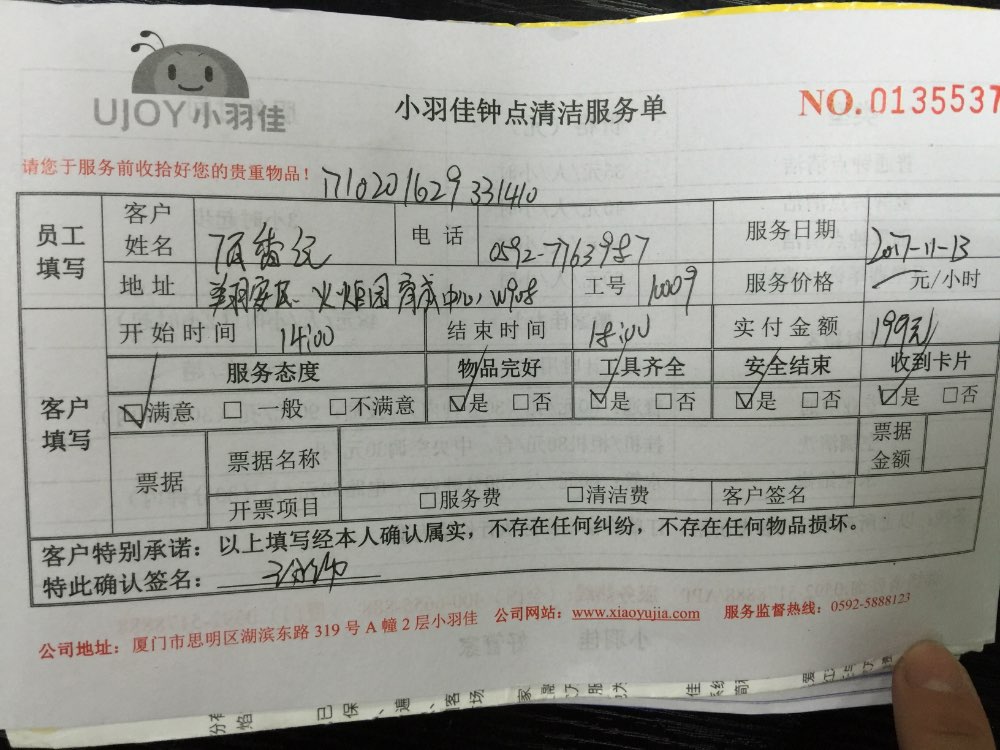 UJOY小羽佳
小羽佳钟点清洁服务单
NO.0135537
请您于服务前收拾好您的贵重物品！
1710201629331410
员工填写 客户姓名 电话 0592-7763987 服务日期 2017-11-13
地址 火炬园 W908 工号 10009 服务价格 元/小时
客户填写 开始时间 14:00 结束时间 18:00 实付金额 199元
服务态度 物品完好 工具齐全 安全结束 收到卡片
☑满意 □一般 □不满意 ☑是 □否 ☑是 □否 ☑是 □否 ☑是 □否
票据 票据名称 票据金额
开票项目 □服务费 □清洁费 客户签名
客户特别承诺：以上填写经本人确认属实，不存在任何纠纷，不存在任何物品损坏。
特此确认签名：
公司地址：厦门市思明区湖滨东路 319 号 A 幢 2 层小羽佳 公司网站：www.xiaoyujia.com 服务监督热线：0592-5888123